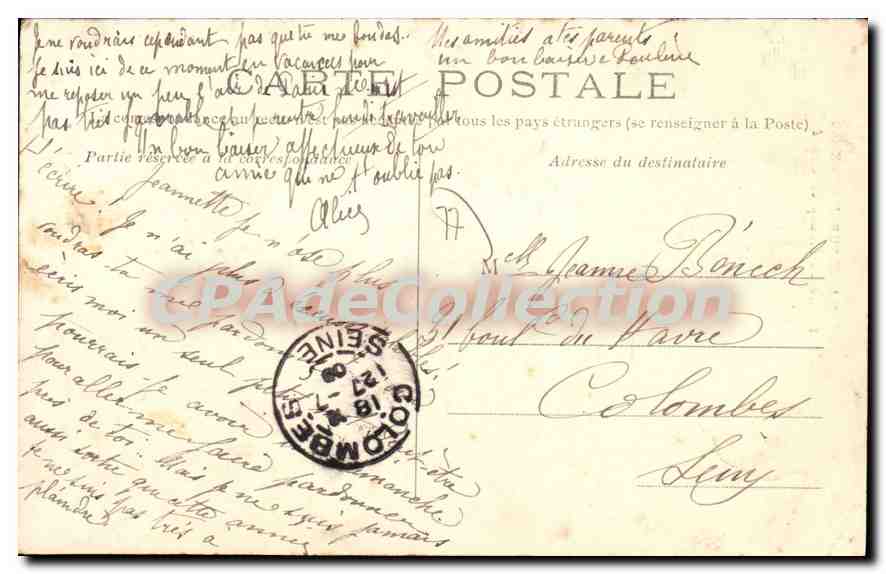 Je ne voudrais cependant pas que tu me boudes.
Je suis ici de ce moment en vacances pour
me reposer un peu l'air de Paris ne m'est
pas très favorable
Un bon baiser affectueux de ton
amie qui ne t'oublie pas.
Alice
Mes amitiés à tes parents
un bon baiser à
CARTE POSTALE
tous les pays étrangers (se renseigner à la Poste)
Partie réservée à la correspondance
Adresse du destinataire
77
Melle Jeanne Bénech
31 boulev du Havre
Colombes
Seine
Jeannette je n'ose plus
t'écrire. Je n'ai plus
voudras tu me pardonner
écris moi un seul petit
pourrais je avoir
pour aller me faire pardonner
près de toi... Mais je ne suis jamais
aussi sotte que cette année
je ne suis pas très à
plaindre
COLOMBES
SEINE
12 7
18 -7
09
CPAdeCollection